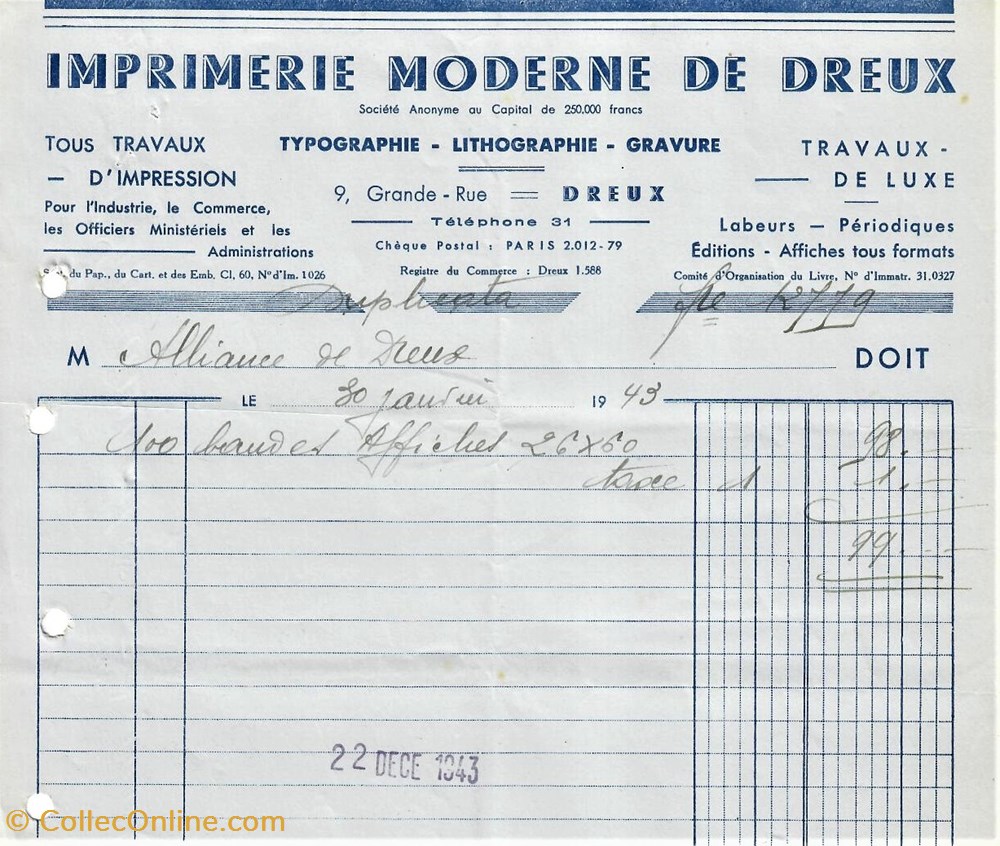 IMPRIMERIE MODERNE DE DREUX
Société Anonyme au Capital de 250.000 francs
TOUS TRAVAUX
— D'IMPRESSION
Pour l'Industrie, le Commerce,
les Officiers Ministériels et les
Administrations
du Pap., du Cart. et des Emb. CI, 60, N° d'Im. 1026
TYPOGRAPHIE - LITHOGRAPHIE - GRAVURE
9, Grande - Rue = DREUX
Téléphone 31
Chèque Postal : PARIS 2.012-79
Registre du Commerce : Dreux 1.588
TRAVAUX -
DE LUXE
Labeurs — Périodiques
Éditions - Affiches tous formats
Comité d'Organisation du Livre, N° d'Immatr. 31.0327
Duplicata
12779
M Alliance de Dreux DOIT
LE 30 janvier 1943
100 bandes Affiches 26×60 98.-
taxe 1 1.-
99.--
22 DECE 1943
© CollecOnline.com